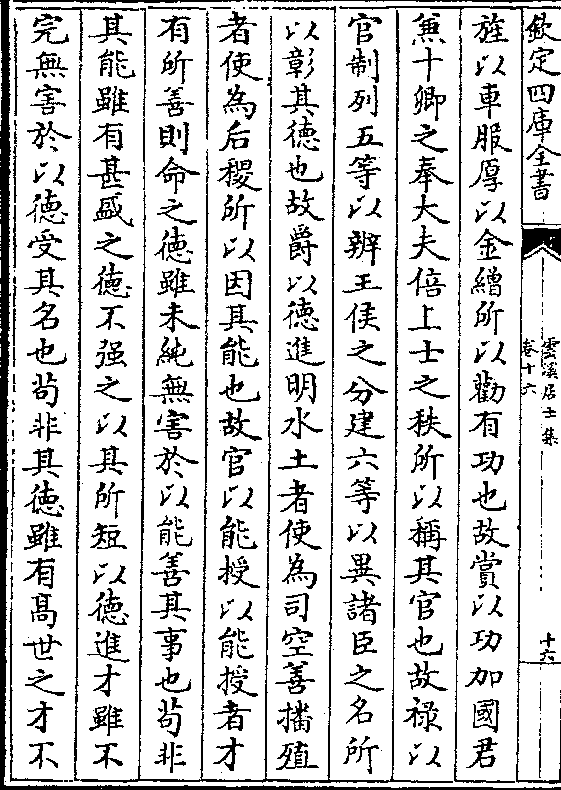 欽定四庫全書
雲溪居士集
卷十六
十六
旌以車服厚以金繒所以勸有功也故賞以功加國君
兼十卿之奉大夫倍上士之秩所以稱其官也故禄以
官制列五等以辨王侯之分建六等以異諸臣之名所
以彰其德也故爵以德進明水土者使為司空善播殖
者使為后稷所以因其能也故官以能授以能授者才
有所善則命之徳雖未純無害於以能善其事也茍非
其能雖有甚盛之徳不强之以其所短以徳進才雖不
完無害於以徳受其名也茍非其徳雖有髙世之才不